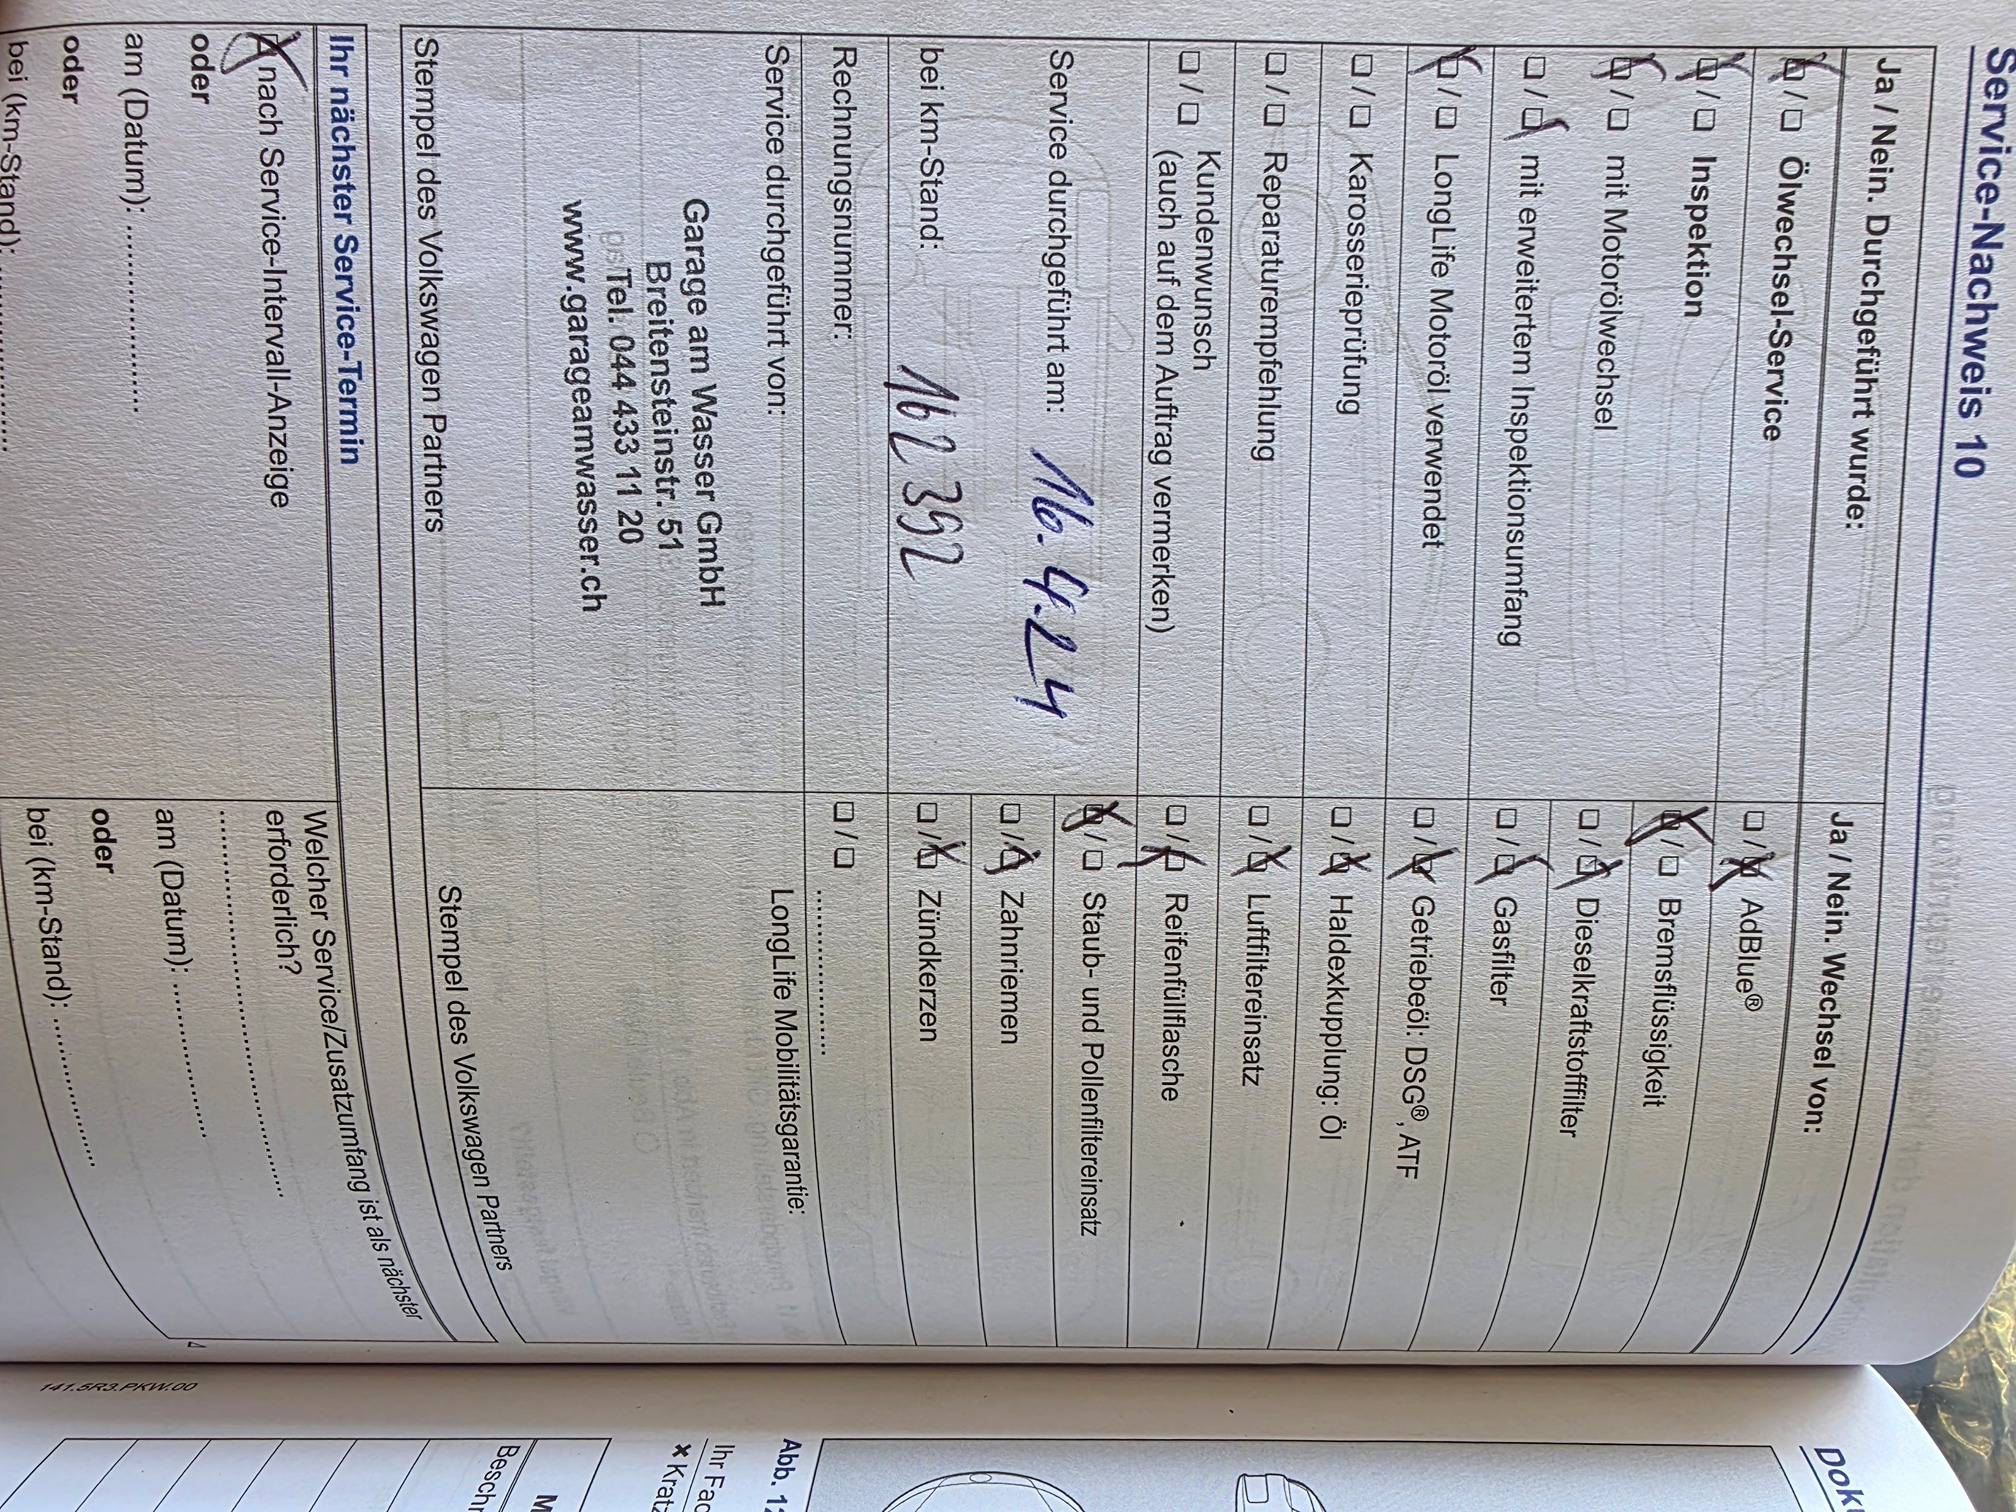 Service-Nachweis 10
Ja / Nein. Durchgeführt wurde:
☒ / ☐ Ölwechsel-Service
☒ / ☐ Inspektion
☒ / ☐ mit Motorölwechsel
☐ / ☒ mit erweitertem Inspektionsumfang
☒ / ☐ LongLife Motoröl verwendet
☐ / ☐ Karosserieprüfung
☐ / ☐ Reparaturempfehlung
☐ / ☐ Kundenwunsch
(auch auf dem Auftrag vermerken)
Service durchgeführt am: 16.4.24
bei km-Stand: 162 392
Rechnungsnummer:
Service durchgeführt von:
Garage am Wasser GmbH
Breitensteinstr. 51
Tel. 044 433 11 20
www.garageamwasser.ch
Stempel des Volkswagen Partners
Ja / Nein. Wechsel von:
☐ / ☒ AdBlue®
☒ / ☐ Bremsflüssigkeit
☐ / ☒ Dieselkraftstofffilter
☐ / ☒ Gasfilter
☐ / ☒ Getriebeöl: DSG®, ATF
☐ / ☒ Haldexkupplung: Öl
☐ / ☒ Luftfiltereinsatz
☐ / ☒ Reifenfüllflasche
☒ / ☐ Staub- und Pollenfiltereinsatz
☐ / ☒ Zahnriemen
☐ / ☒ Zündkerzen
☐ / ☐ ....................
LongLife Mobilitätsgarantie:
Stempel des Volkswagen Partners
Ihr nächster Service-Termin
☒ nach Service-Intervall-Anzeige
oder
am (Datum): ....................
oder
bei (km-Stand): ....................
Welcher Service/Zusatzumfang ist als nächster
erforderlich?
........................................
am (Datum): ....................
oder
bei (km-Stand): ....................
141.5R3.PKW.00
Abb. 12
Ihr Fac
× Kratz
Beschr